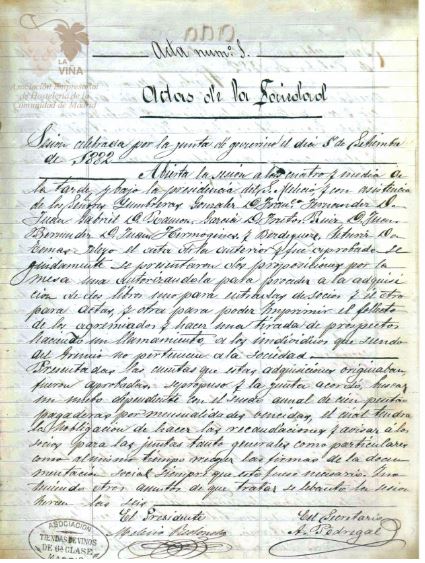 Acta num.º 1.
LA
VIÑA
Asociación Empresarial
de Hostelería de la
Comunidad de Madrid
Actas de la Sociedad
Sesion celebrada por la junta de el dia 5 de Setiembre
de 1882 Abierta la sesion a las cuatro y media de
la tarde, y bajo la presidencia del Sr. y con asistencia
de los Señores Gonzalez D. Franco. Fernandez D.
Juan Gabriel D. Ramon Garcia D. Ruiz D. Juan
D. y D.
el acta de la anterior y fué aprobada. Se
guidamente se presentaron dos proposiciones por la
mesa una autorizandola para proceder a la adquisi
cion de dos libros uno para entradas de socios y el otro
para actas, y otra para poder imprimir el folleto
de los agremiados y hacer una tirada de prospectos
haciendo un llamamiento a los individuos que siendo
del Gremio no pertenecen a la Sociedad.
Presentadas las cuentas que estas adquisiciones originaban
fueron aprobadas. Se propuso y la junta acordó, buscar
un dependiente con el sueldo anual de cien pesetas
pagaderas por mensualidades vencidas, el cual tendra
la obligacion de hacer las recaudaciones y avisar á los
socios para las juntas tanto generales como particulares
como al mismo tiempo recoger las firmas de la docu
mentacion social siempre que esto fuese necesario. No
habiendo otros asuntos de que tratar se levantó la sesion
las seis
El Presidente El Secretario
A. Pedregal
ASOCIACIÓN
TIENDAS DE VINOS
DE 6ª CLASE
MADRID